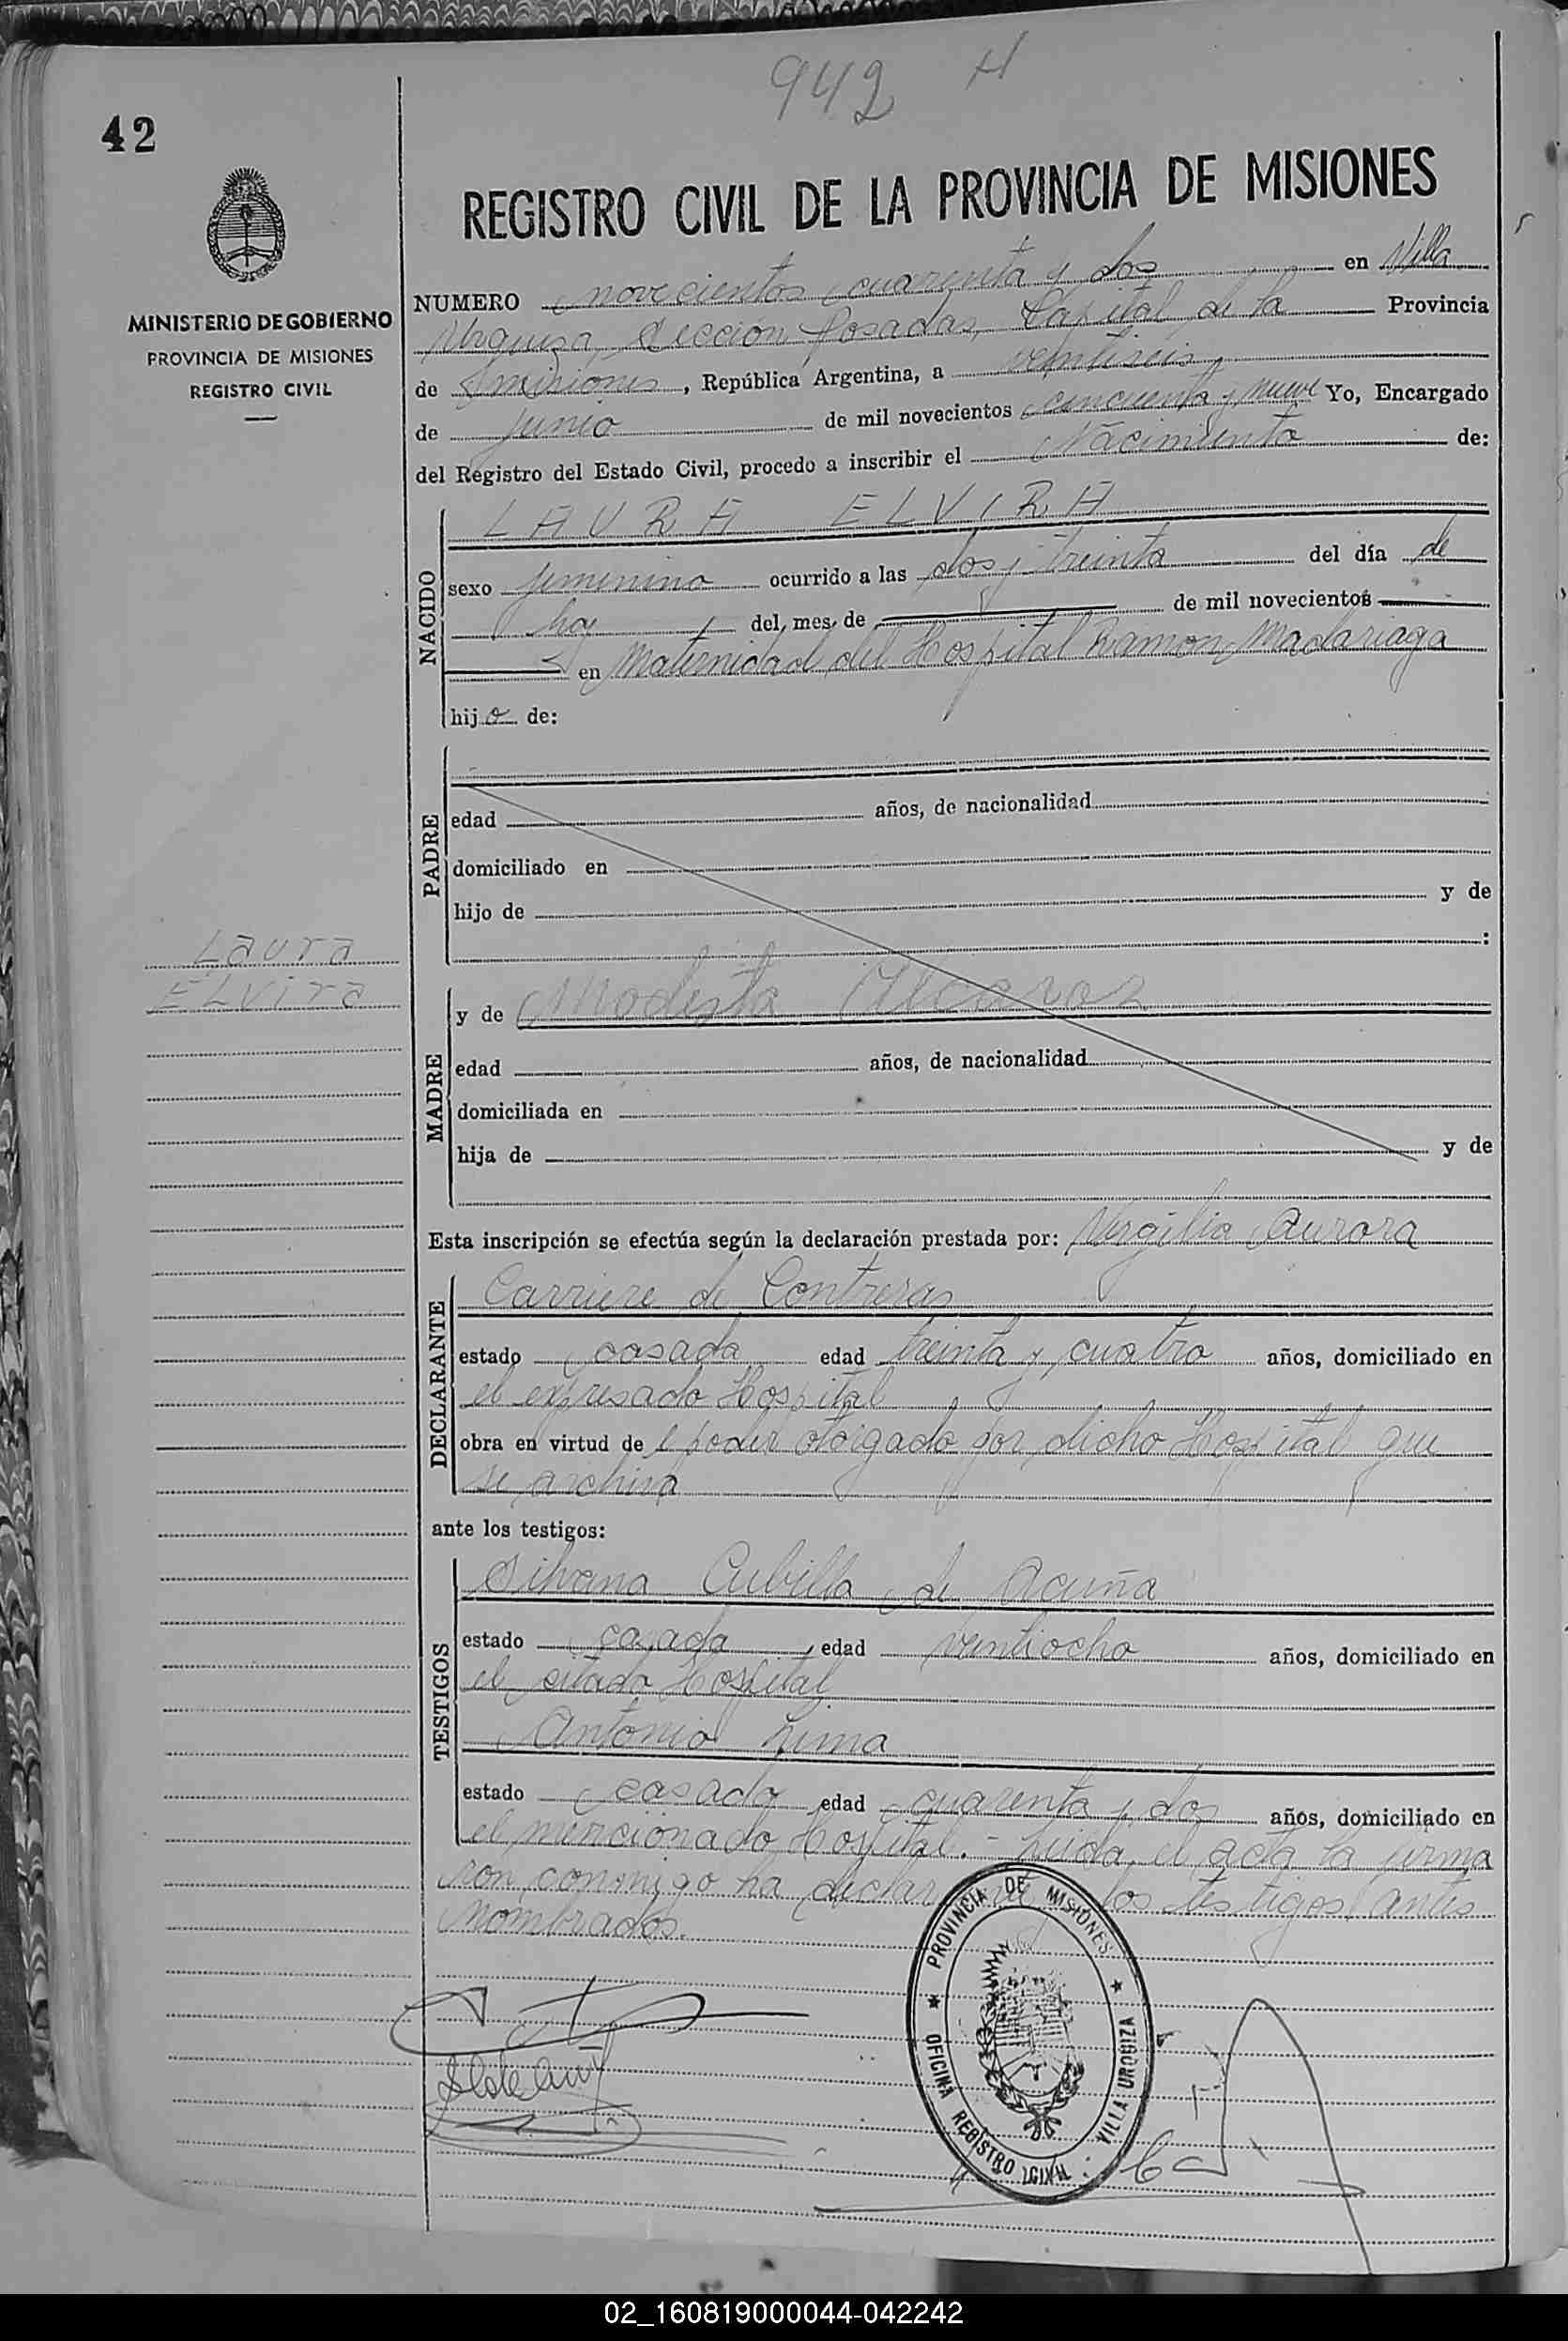 942 H
42
REGISTRO CIVIL DE LA PROVINCIA DE MISIONES
MINISTERIO DE GOBIERNO
PROVINCIA DE MISIONES
REGISTRO CIVIL
NUMERO novecientos cuarenta y dos en Villa
Urquiza, Sección Posadas, Capital de la Provincia
de Misiones, República Argentina, a veintiseis
de junio de mil novecientos cincuenta y nueve Yo, Encargado
del Registro del Estado Civil, procedo a inscribir el Nacimiento de:
NACIDO
LAURA ELVIRA
sexo femenino ocurrido a las dos y treinta del día de
hoy del mes de de mil novecientos
en Maternidad del Hospital Ramon Madariaga
hija de:
PADRE
edad años, de nacionalidad
domiciliado en
hijo de y de
:
Laura
Elvira
MADRE
y de Modesta Alcaraz
edad años, de nacionalidad
domiciliada en
hija de y de
Esta inscripción se efectúa según la declaración prestada por: Virgilia Aurora
DECLARANTE
Carriere de Contreras
estado casada edad treinta y cuatro años, domiciliado en
el expresado Hospital
obra en virtud de poder otorgado por dicho Hospital que
se archiva
ante los testigos:
TESTIGOS
Silvana Cubilla de Acuña
estado casada edad veintiocho años, domiciliado en
el citado Hospital
Antonio Lima
estado casado edad cuarenta y dos años, domiciliado en
el mencionado Hospital.- Leida el acta la firma
ron conmigo ha los testigos antes
nombrados.
PROVINCIA DE MISIONES
OFICINA REGISTRO CIVIL
VILLA URQUIZA
02_160819000044-042242